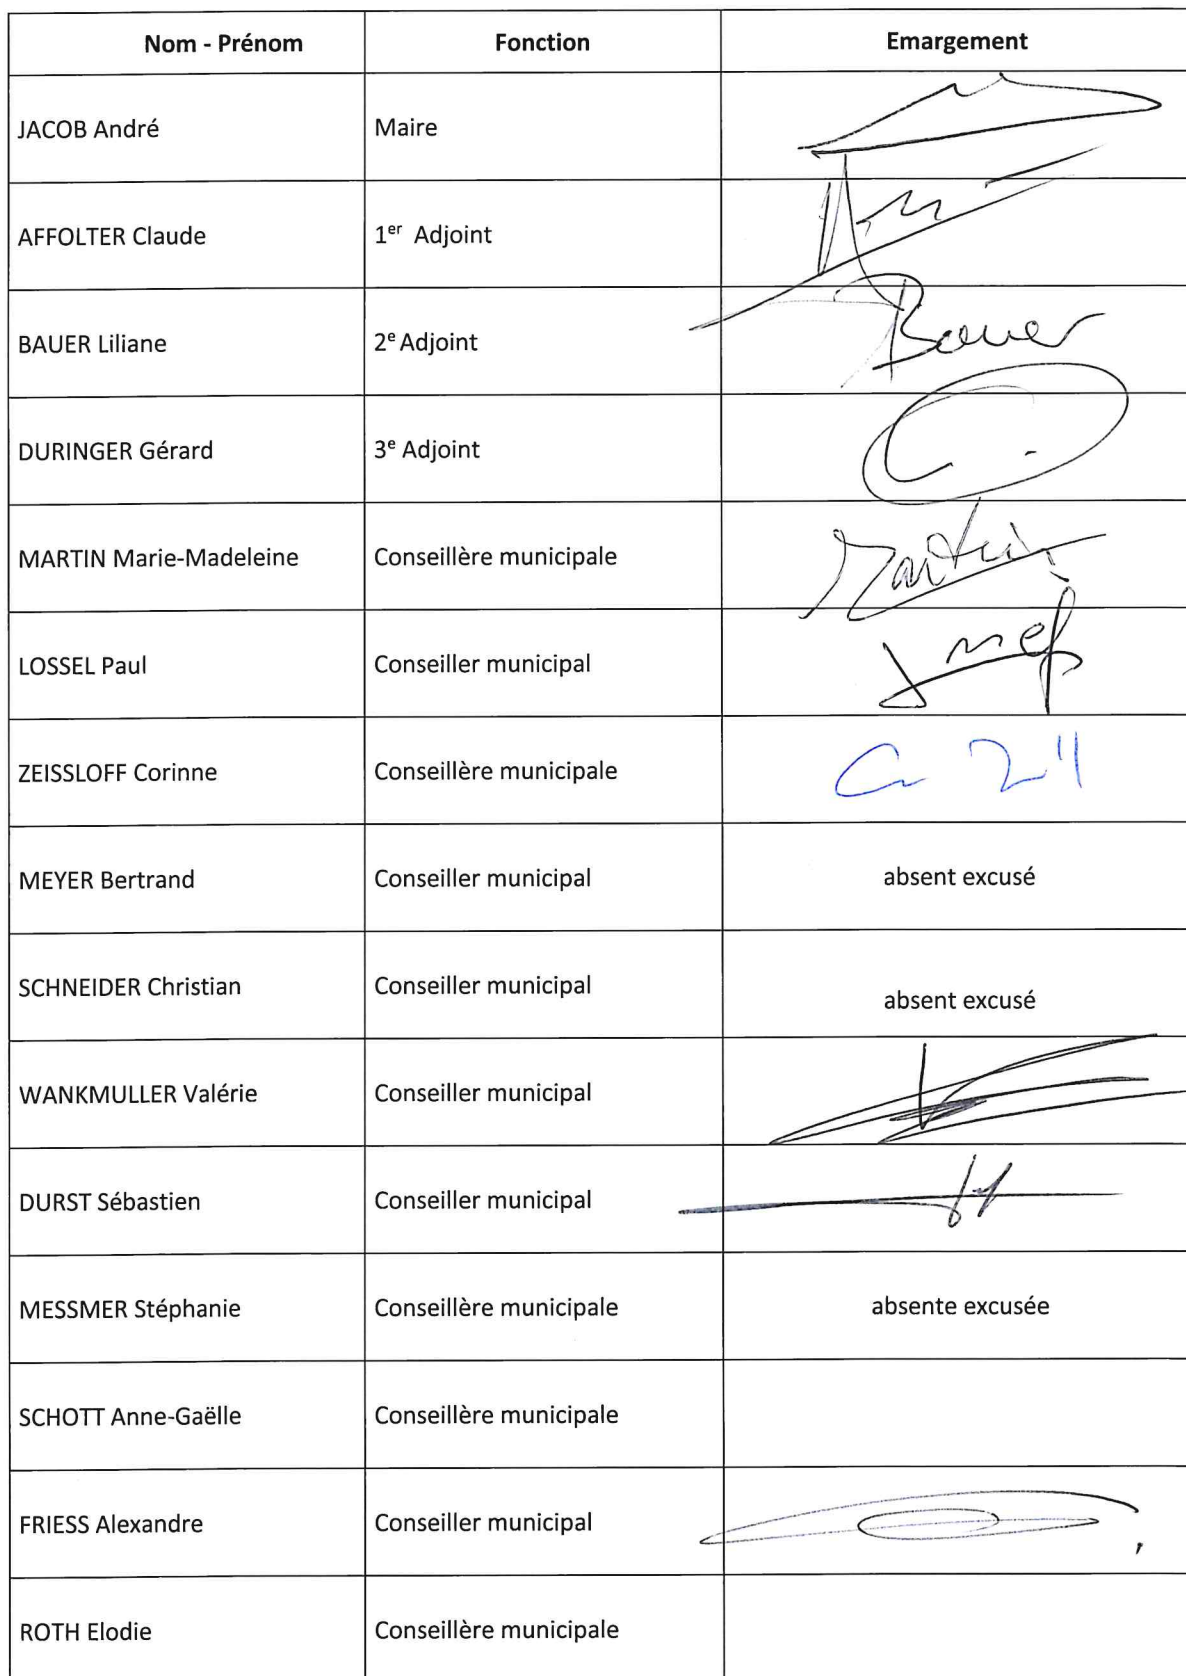 Nom - Prénom Fonction Emargement
JACOB André Maire
AFFOLTER Claude 1er Adjoint
BAUER Liliane 2e Adjoint Bauer
DURINGER Gérard 3e Adjoint
MARTIN Marie-Madeleine Conseillère municipale Martin
LOSSEL Paul Conseiller municipal
ZEISSLOFF Corinne Conseillère municipale
MEYER Bertrand Conseiller municipal absent excusé
SCHNEIDER Christian Conseiller municipal absent excusé
WANKMULLER Valérie Conseiller municipal
DURST Sébastien Conseiller municipal
MESSMER Stéphanie Conseillère municipale absente excusée
SCHOTT Anne-Gaëlle Conseillère municipale
FRIESS Alexandre Conseiller municipal
ROTH Elodie Conseillère municipale